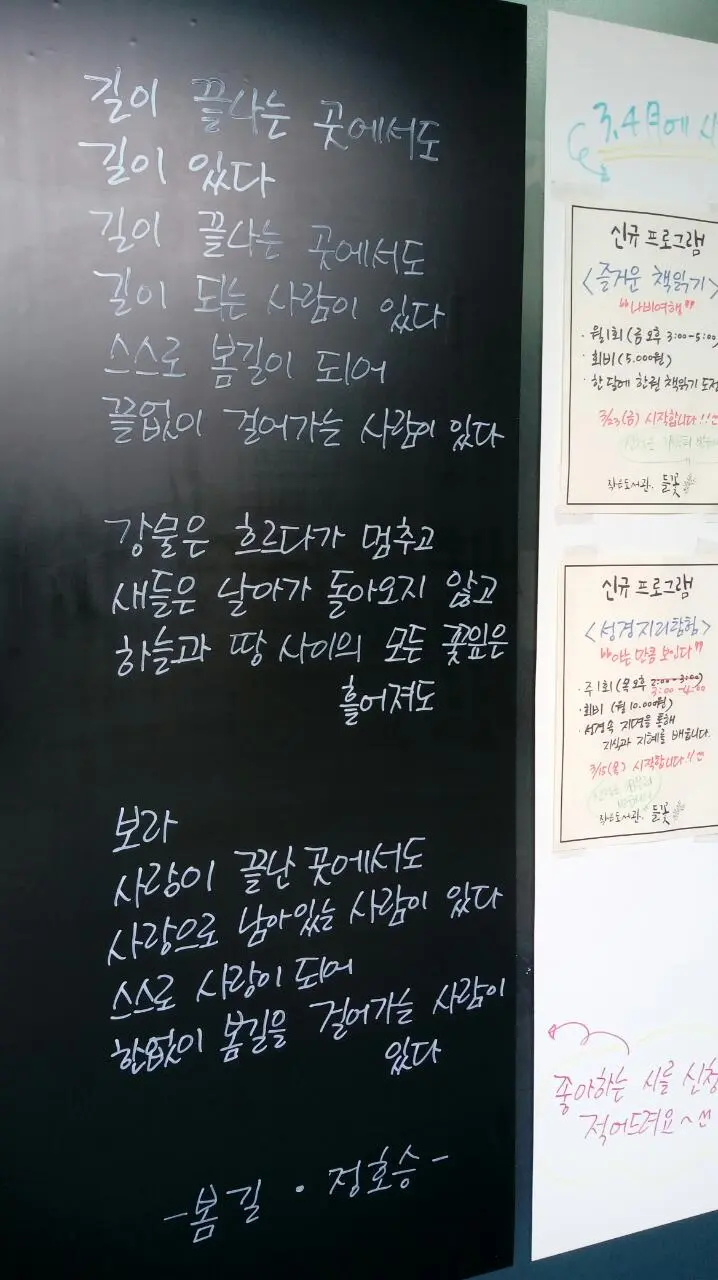 길이 끝나는 곳에서도
길이 있다
길이 끝나는 곳에서도
길이 되는 사람이 있다
스스로 봄길이 되어
끝없이 걸어가는 사람이 있다
강물은 흐르다가 멈추고
새들은 날아가 돌아오지 않고
하늘과 땅 사이의 모든 꽃잎은
흩어져도
보라
사랑이 끝난 곳에서도
사랑으로 남아있는 사람이 있다
스스로 사랑이 되어
한없이 봄길을 걸어가는 사람이
있다
-봄길 · 정호승-
3.4月에
신규 프로그램
<즐거운 책읽기>
"나비여행"
· 월1회 (금 오후 3:00-5:00)
· 회비 (5.000원)
· 한달에 한권 책읽기 도전
3/23(금) 시작합니다!!
작은도서관. 들꽃
신규 프로그램
<성경지리탐험>
"아는 만큼 보인다"
· 주1회 (목 오후 2:00-3:00)
3:00-4:00
· 회비 (월 10.000원)
· 성경속 지명을 통해
지식과 지혜를 배웁니다.
3/15(목) 시작합니다!!
작은도서관. 들꽃
좋아하는 시를 신청
적어드려요~